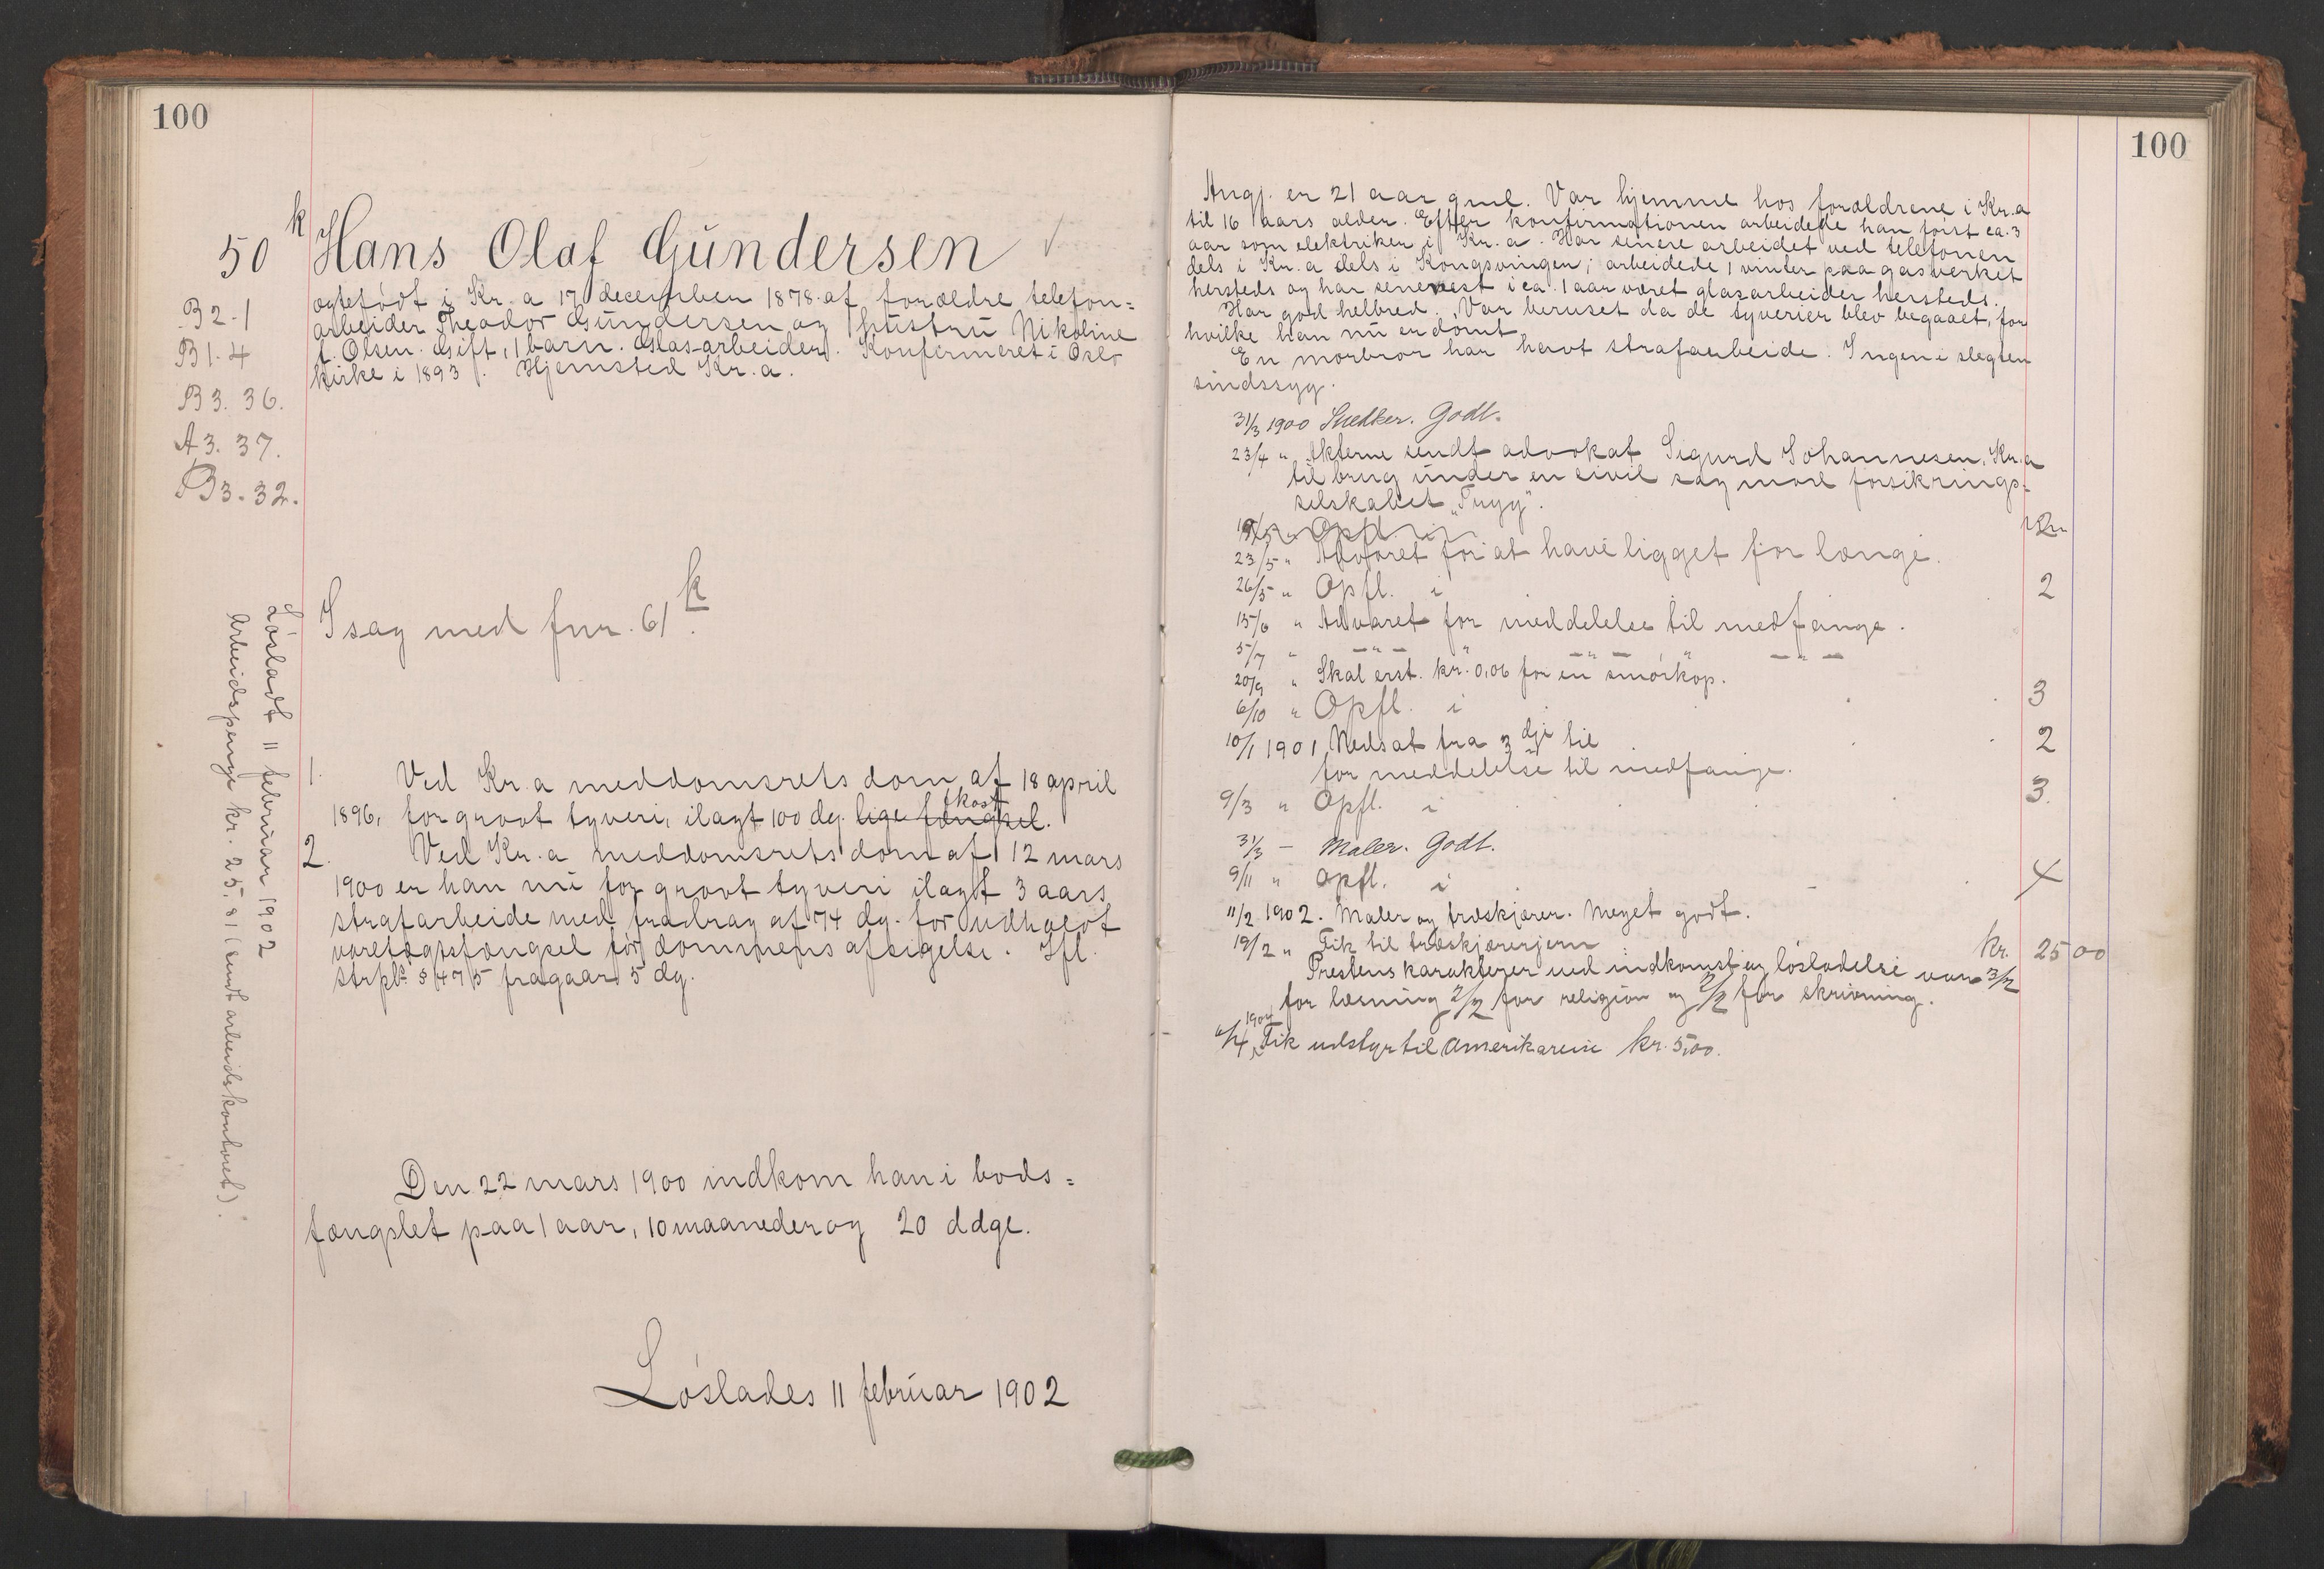 100
50 k Hans Olaf Gundersen
ægtefødt i Kr.a 17 december 1878 af forældre telefon=
arbeider Theodor Gundersen og hustru Nikoline
f. Olsen. Gift, 1 barn. Glasarbeider. Konfirmeret i Oslo
kirke i 1893. Hjemsted Kr.a.
B2.1
B1.4
B3.36.
A3.37.
B3.32.
I sag med fnr. 61 k.
Løsladt 11 februar 1902
Arbeidspenge kr. 25,81 (sendt arbeidskontoret).
1. Ved Kr.a meddomsrets dom af 18 april
1896, for grovt tyveri, ilagt 100 dg. lige fængsel. kost
2. Ved Kr.a meddomsrets dom af 12 mars
1900 er han nu for grovt tyveri ilagt 3 aars
strafarbeide med fradrag af 74 dg. for udholdt
varetægtsfængsel før dommens afsigelse. Ifl.
strpl. § 475 fragaar 5 dg.
Den 22 mars 1900 indkom han i bods=
fængslet paa 1 aar, 10 maaneder og 20 ddge.
Løslades 11 februar 1902
100
Angj. er 21 aar gml. Var hjemme hos forældrene i Kr.a
til 16 aars alder. Efter konfirmationen arbeidede han først ca. 3
aar som elektriker i Kr.a. Har senere arbeidet ved telefonen
dels i Kr.a dels i Kongsvinger; arbeidede 1 vinter paa gasverket
hersteds og har senenest i ca. 1 aar været glasarbeider hersteds.
Har god helbred. Var beruset da de tyverier blev begaaet, for
hvilke han nu er dømt.
En morbror har havt strafarbeide. Ingen i slegten
sindssyg.
31/3 1900 Snedker. Godt.
23/4 " Akterne sendt advokat Sigurd Johannesen, Kr.a
til brug under en civil sag mod forsikrings=
selskabet "Tryg".
Opfl. i 2
23/5 " Advaret for at have ligget for længe.
26/5 " Opfl. i 2
15/6 " Advaret for meddelelse til medfange.
5/7 " — " — " — " — — " —
20/9 " Skal erst. kr. 0,06 for en smørkop.
6/10 " Opfl. i 3
10/1 1901 Nedsat fra 3 dje til 2
for meddelelse til medfange.
9/3 " Opfl. i 3.
31/3 — Maler. Godt.
9/11 " Opfl. i 4
11/2 1902. Maler og træskjærer. Meget godt.
19/2 " Fik til træskjærerjern kr. 25 00
Prestens karakterer ved indkomst og løsladelse var 3/2
for læsning 2/2 for religion og 2/2 for skrivning.
1904
6/4 Fik udstyr til Amerikareise kr. 5,00.